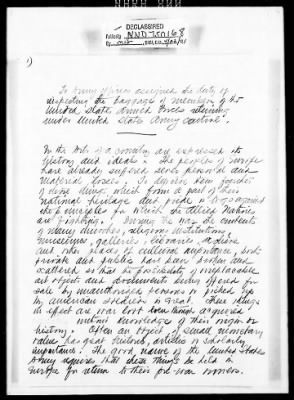 DECLASSIFIED
Authority NND 750168
1)
To Army officers assigned the duty of
inspecting the baggage of members of the
United States Armed Forces returning
under United States Army control.
In the Arts of a country are expressed its
history and ideals. The peoples of Europe
have already suffered severe personal and
material losses. To deprive them further
of those things which form a part of their
national heritage and pride is to go against
the principles for which the Allied Nations
are fighting. During the war the contents
of many churches, religious institutions,
museums, galleries, libraries,
and other places of cultural importance, both
private and public have been broken and
scattered so that the possibility of irreplaceable
art objects and documents being offered for
sale by unauthorized persons or picked up
by American soldiers is great. These things
in effect are war loot even though acquired
without knowledge of their origin or
history. Often an object of small monetary
value has great historic, artistic or scholarly
importance. The good name of the United States
Army requires that these things be held in
Europe for return to their pre war owners.